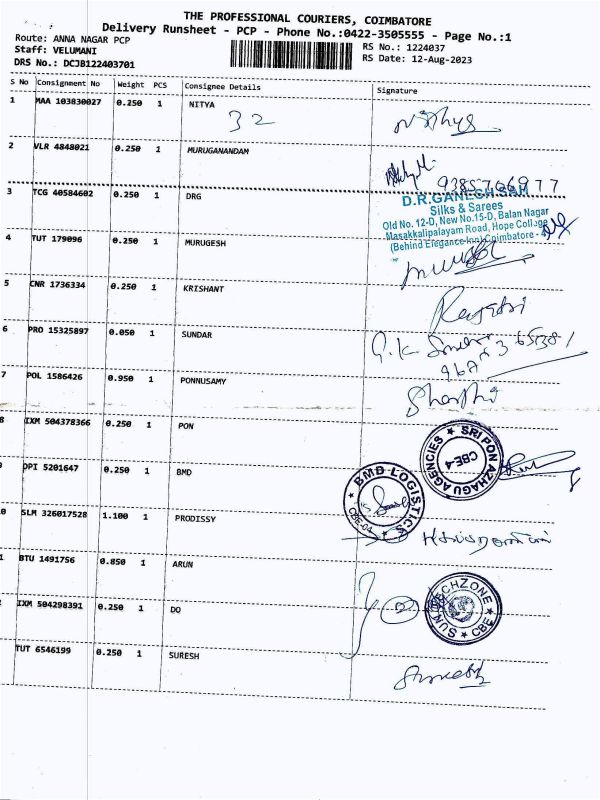 THE PROFESSIONAL COURIERS, COIMBATORE
Delivery Runsheet - PCP - Phone No.:0422-3505555 - Page No.:1
Route: ANNA NAGAR PCP
RS No.: 1224037
Staff: VELUMANI
RS Date: 12-Aug-2023
DRS No.: DCJB122403701
S No Consignment No Weight PCS Consignee Details Signature
1 MAA 103830027 0.250 1 NITYA
32
2 VLR 4848021 0.250 1 MURUGANANDAM
3 TCG 40584602 0.250 1 DRG
D.R.GANESH SAH
Silks & Sarees
Old No. 12-D, New No.15-D, Balan Nagar
Masakkalipalayam Road, Hope College
(Behind Elegance Inn) Coimbatore - 4
4 TUT 179096 0.250 1 MURUGESH
5 CNR 1736334 0.250 1 KRISHANT
6 PRO 15325897 0.050 1 SUNDAR
7 POL 1586426 0.950 1 PONNUSAMY
8 IXM 504378366 0.250 1 PON
SRI PON AZHAGU AGENCIES
CBE-4
DPI 5201647 0.250 1 BMD
BMD LOGISTICS
CBE-04
0 SLM 326017528 1.100 1 PRODISSY
1 BTU 1491756 0.850 1 ARUN
IXM 504298391 0.250 1 DO
CBE
TUT 6546199 0.250 1 SURESH
Suresh